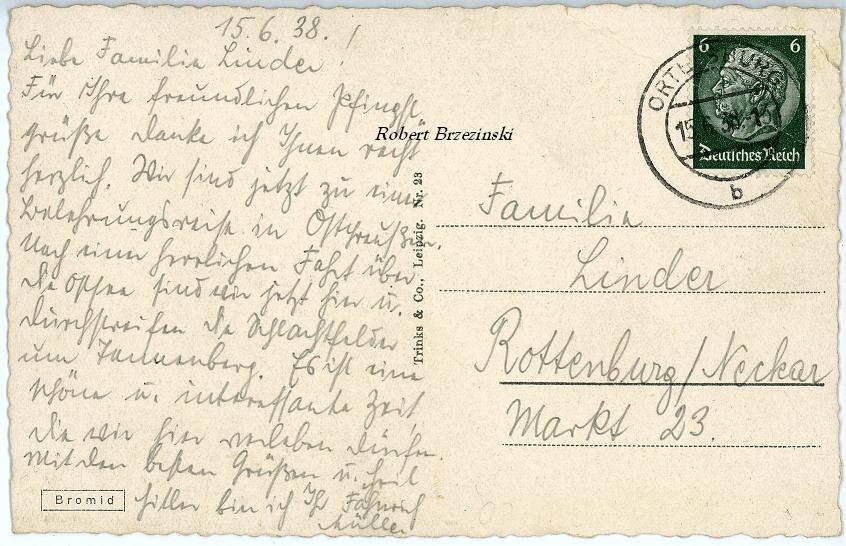 15.6.38. !
Liebe Familie Linder!
Für Ihre freundlichen Pfingst-
grüße danke ich Ihnen recht
herzlich. Wir sind jetzt zu einer
Belehrungsreise in Ostpreußen.
Nach einer herrlichen Fahrt über
die Ostsee sind wir jetzt hier u.
durchstreifen die Schlachtfelder
um Tannenberg. Es ist eine
schöne u. interessante Zeit,
die wir hier verleben dürfen.
Mit den besten Grüßen u. Heil
Hitler bin ich Ihr Fähnrich
Müller
Bromid
Robert Brzezinski
Trinks & Co., Leipzig. Nr. 23
6 6
Deutsches Reich
ORTELSBURG
15.6.38.-15
b
Familie
Linder
Rottenburg/Neckar
Markt 23.